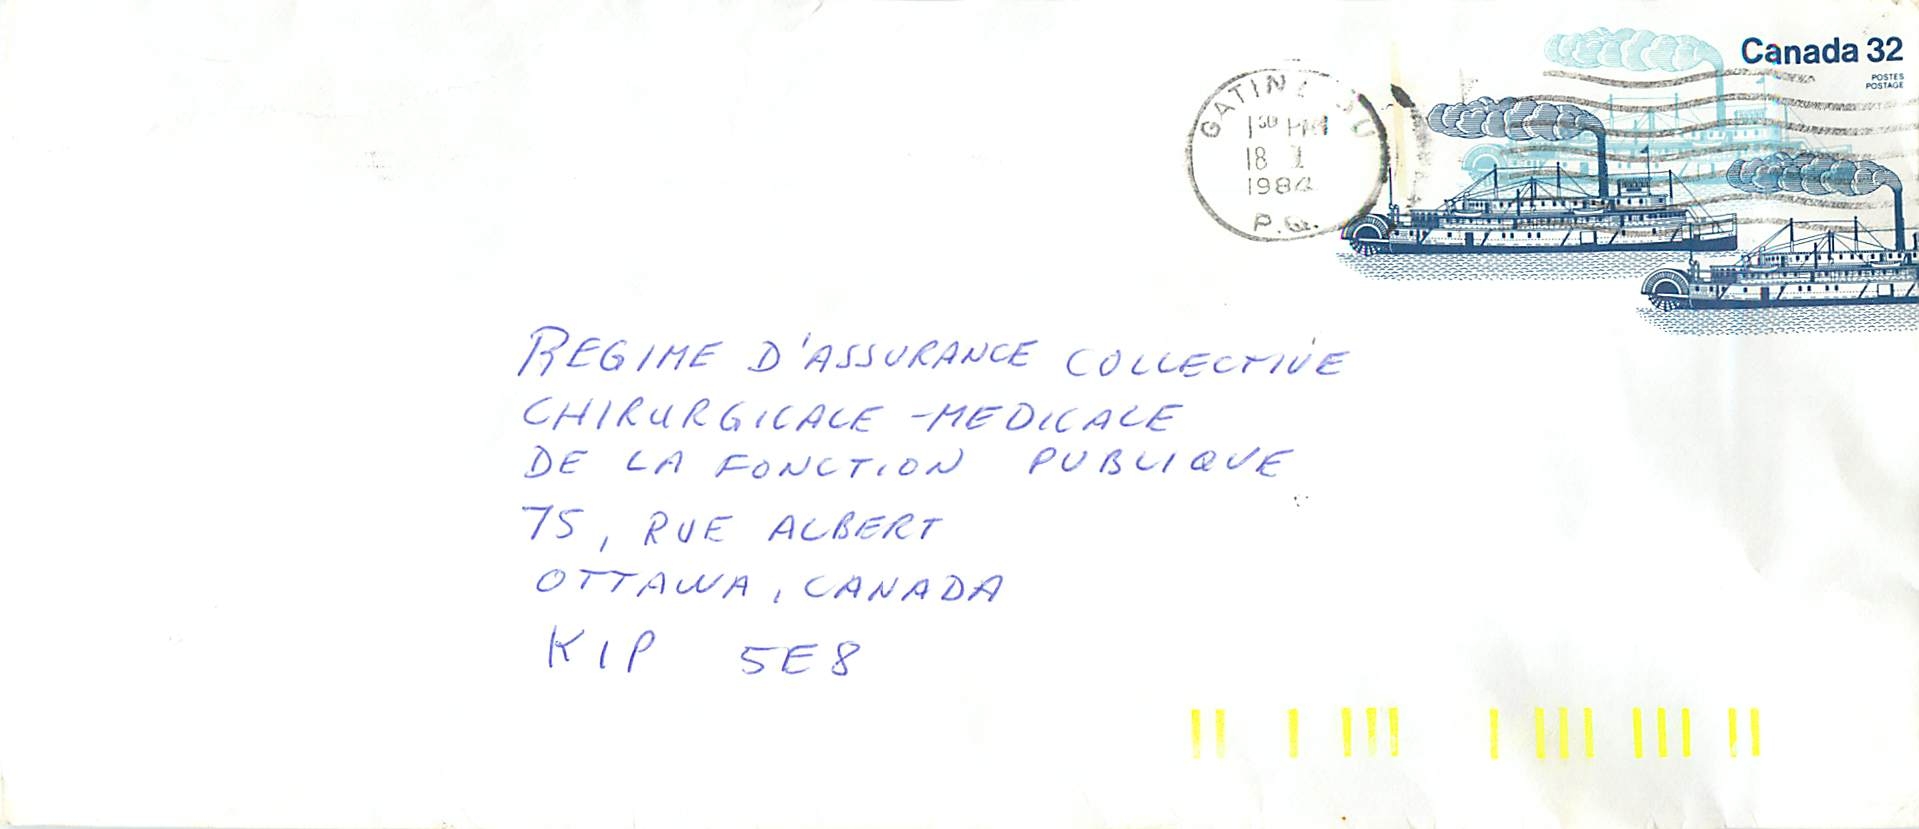 Canada 32
POSTES
POSTAGE
GATINEAU
1 30 PM
18 I
1984
P.Q.
REGIME D'ASSURANCE COLLECTIVE
CHIRURGICALE - MEDICALE
DE LA FONCTION PUBLIQUE
75, RUE ALBERT
OTTAWA, CANADA
K1P 5E8